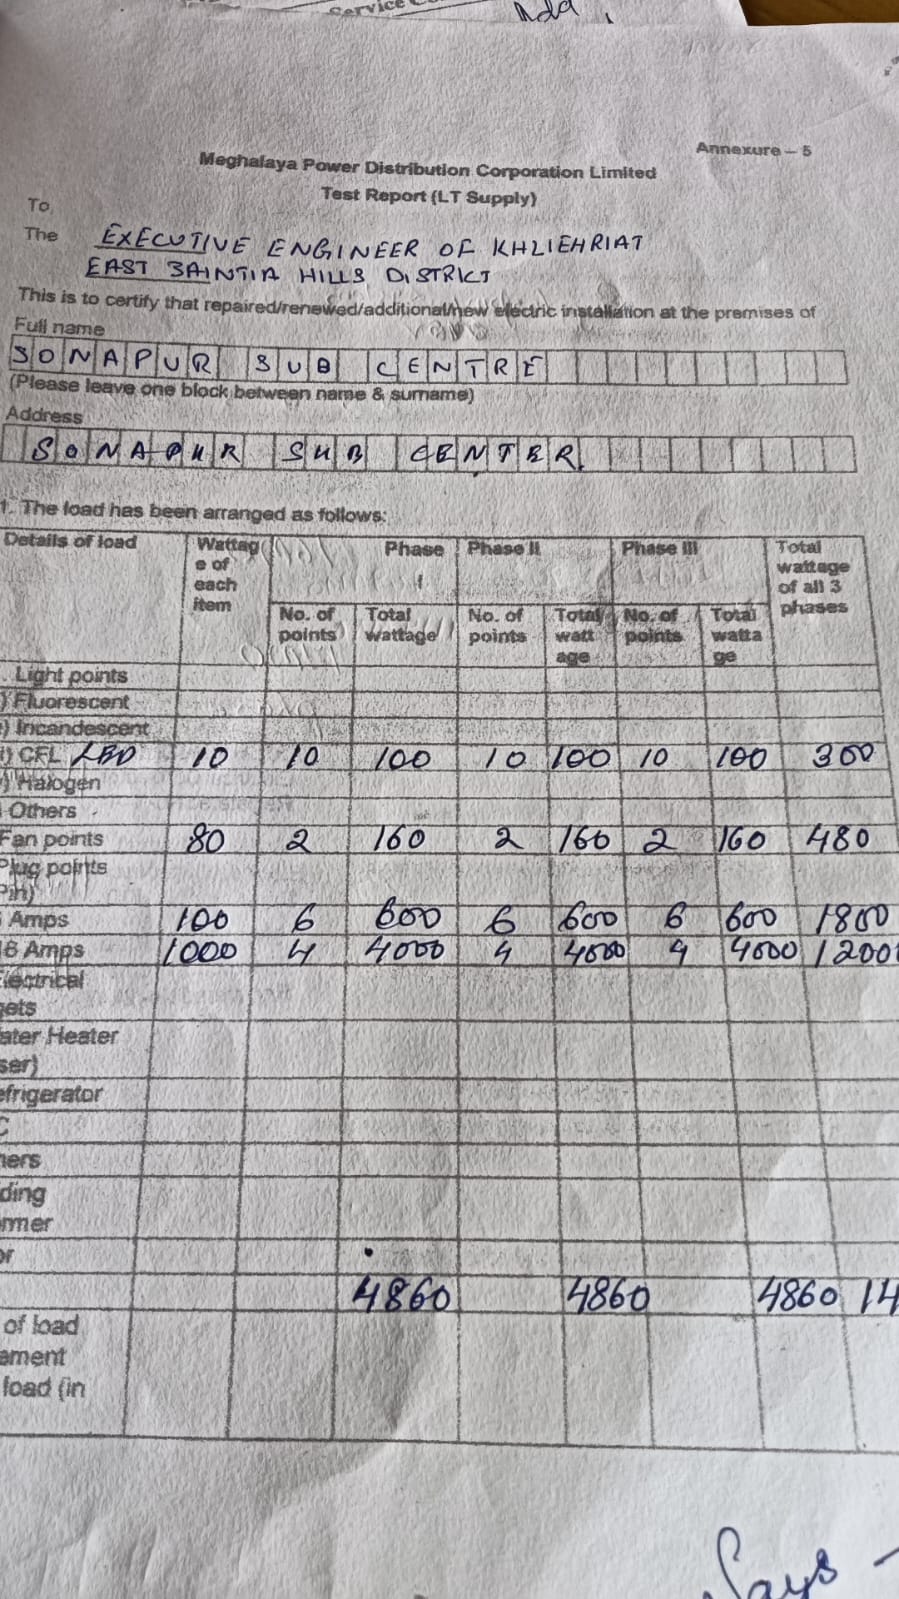 Service
Add
Annexure – 5
Meghalaya Power Distribution Corporation Limited
Test Report (LT Supply)
To,
The EXECUTIVE ENGINEER OF KHLIEHRIAT
EAST JAINTIA HILLS DISTRICT
This is to certify that repaired/renewed/additional/new electric installation at the premises of
Full name
SONAPUR SUB CENTRE
(Please leave one block between name & surname)
Address
SONAPUR SUB CENTER
1. The load has been arranged as follows:
Details of load Wattage of each item Phase I Phase II Phase III Total wattage of all 3 phases
No. of points Total wattage No. of points Total wattage No. of points Total wattage
Light points
Fluorescent
Incandescent
CFL LED 10 10 100 10 100 10 100 300
Halogen
Others
Fan points 80 2 160 2 160 2 160 480
Plug points
Pin)
Amps 100 6 600 6 600 6 600 1800
16 Amps 1000 4 4000 4 4000 4 4000 1200
Electrical
gets
ater Heater
ser)
efrigerator
C
hers
ding
ormer
or
4860 4860 4860 14
of load
ement
load (in
Says -